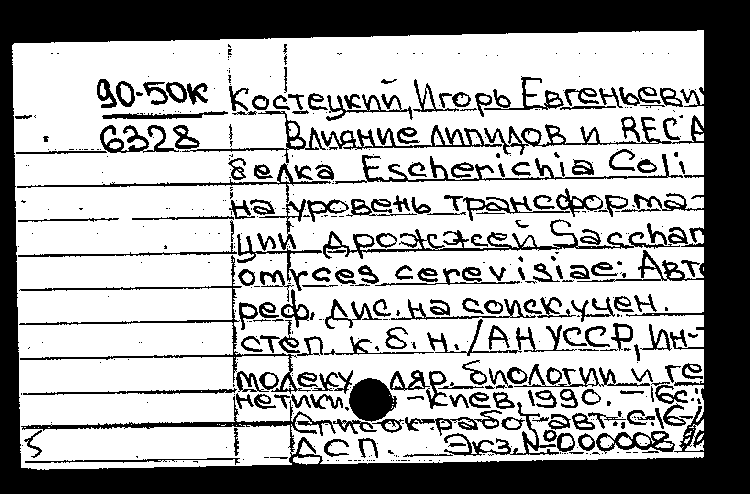 90-50К Костецкий, Игорь Евгеньевич
6328 Влияние липидов и REC A
белка Escherichia Coli
на уровень трансформа-
ции дрожжей Sacchar
omyces cerevisiae: Авто
реф. дис. на соиск. учен.
степ. к.б.н. / АН УССР, Ин-т
молекуляр. биологии и ге
нетики. - Киев, 1990. - 16с.;
Список работ авт.: с.16
ДСП. Экз. №000008